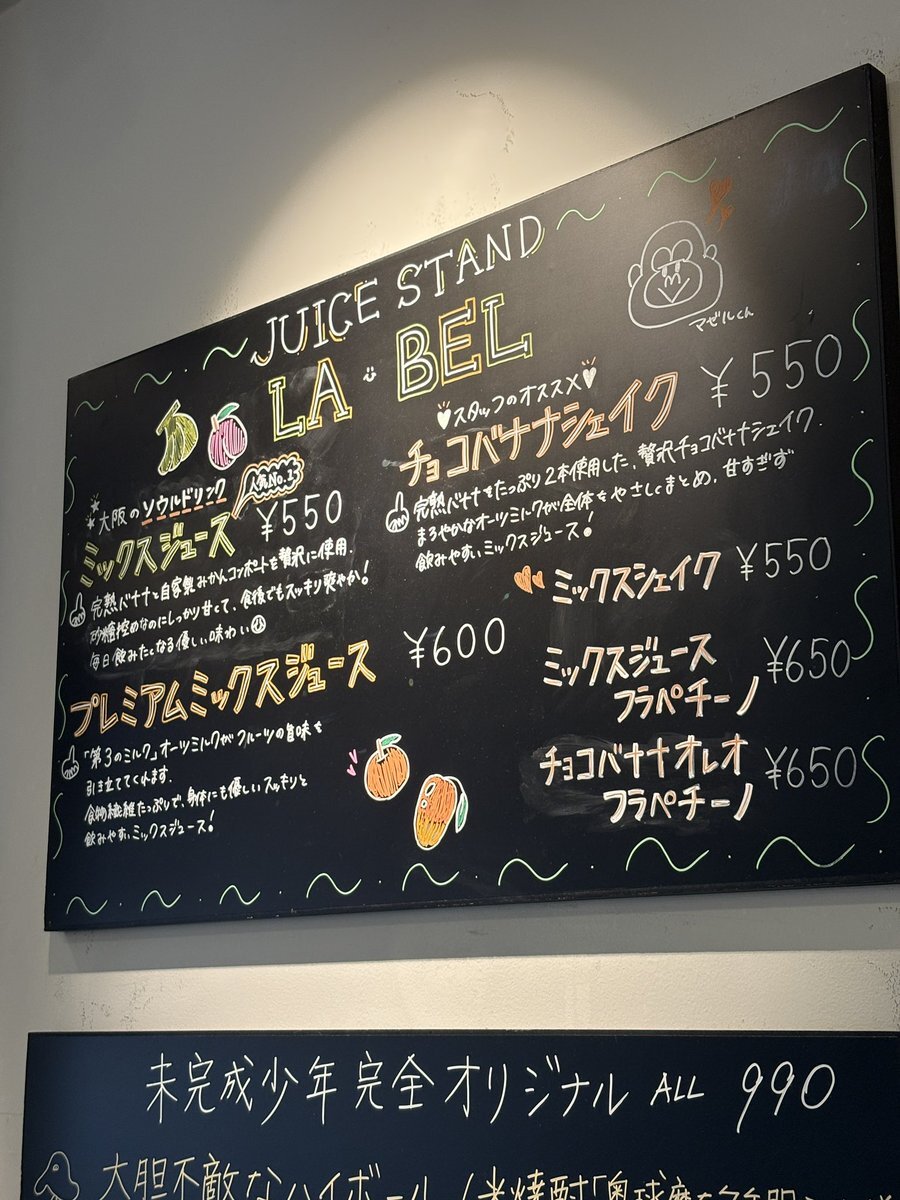 JUICE STAND
LA BEL
マゼルくん
大阪のソウルドリンク
人気No.1
ミックスジュース ¥550
完熟バナナと自家製みかんコンポートを贅沢に使用.
砂糖控めなのにしっかり甘くて、食後でもスッキリ爽やか!
毎日飲みたくなる優しい味わい
プレミアムミックスジュース ¥600
「第3のミルク」オーツミルクがフルーツの旨味を
引き立ててくれます.
食物繊維たっぷりで、身体にも優しいスッキリと
飲みやすいミックスジュース!
スタッフのオススメ
チョコバナナシェイク ¥550
完熟バナナをたっぷり2本使用した、贅沢チョコバナナシェイク.
まろやかなオーツミルクが全体をやさしくまとめ、甘すぎず
飲みやすいミックスジュース!
ミックスシェイク ¥550
ミックスジュース
フラペチーノ ¥650
チョコバナナオレオ
フラペチーノ ¥650
未完成少年完全オリジナル ALL 990
大胆不敵なハイボール